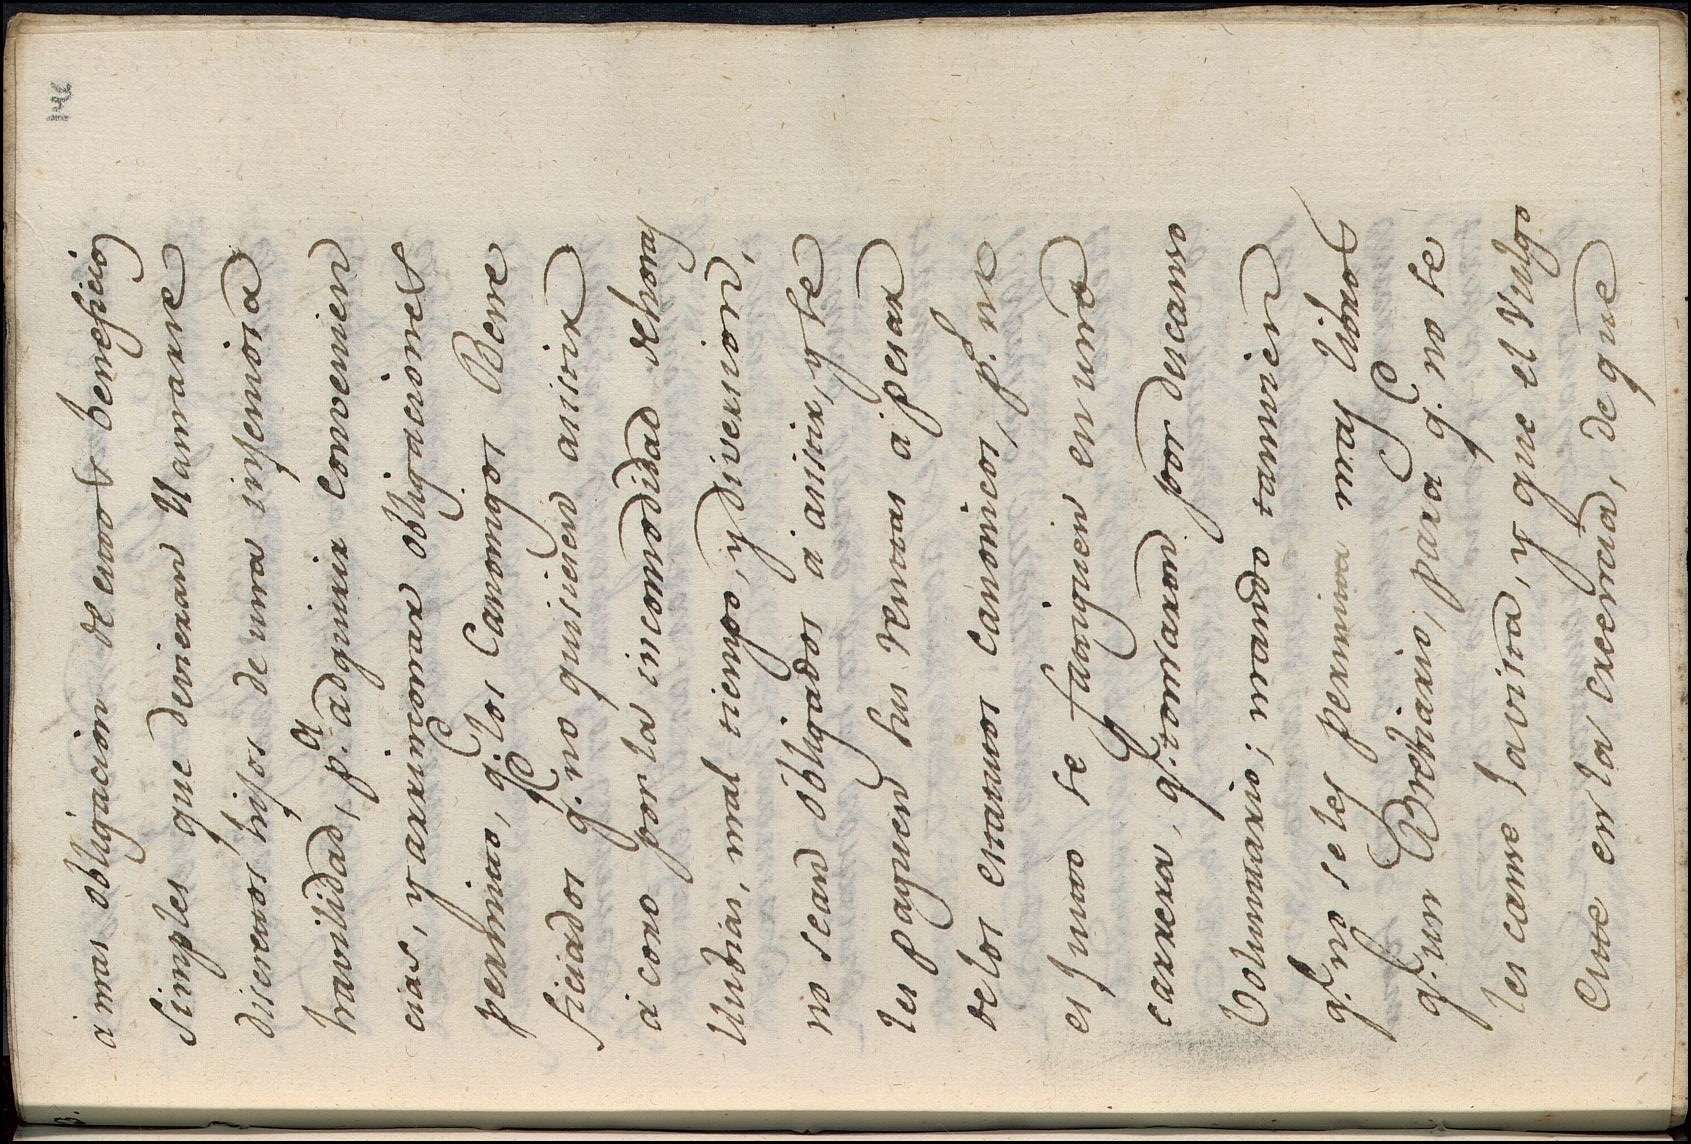 142
a mas obligacion de estos beneficios
simples que devieran llamarse
discretos hijos de una insensora
havilidad, p.ª adquirir convenien
cias, y arrinconar obligaciones
permitio, q.e los Canonigos Bene
ficiados q.e no quisiesen asistir
â coro por la incomodidad de horas
lluvias, mal tiempo, y diversion,
no sean obligados â asistir, y se
les paguen sus rentas â pesar
de los estatutos canonicos, p.s ne
es justo se fatiguen en una
carrera, q.e tomaron por descanso
Voluntario; mando tamvien
q.e no se les permita mas libros
q.e un Breviario, para q.e no se
les canse la vista, y que el Vulgo
este en la creencia, de que